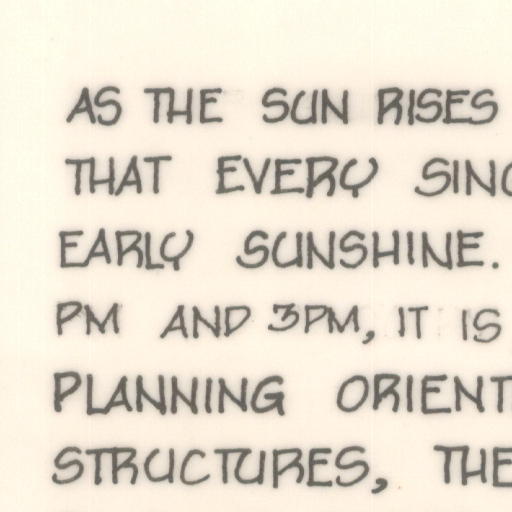 AS THE SUN RISES
THAT EVERY SINC
EARLY SUNSHINE.
PM AND 3PM, IT IS
PLANNING ORIENT
STRUCTURES, THE